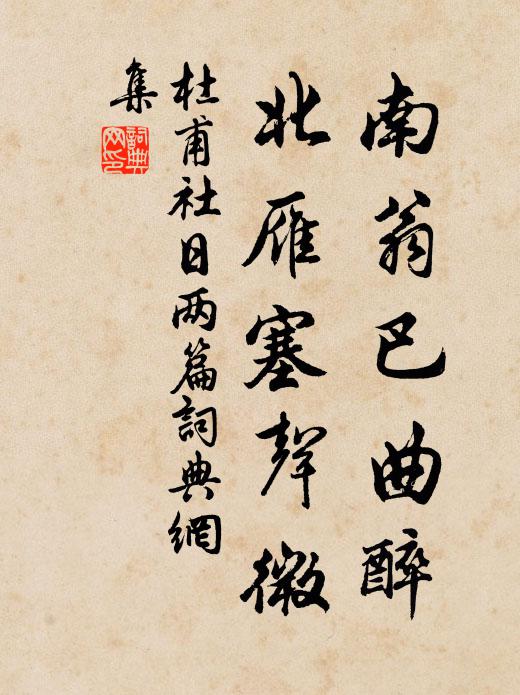 南翁巴曲醉
北雁塞聲微
杜甫社日两篇詞典網
集
詞典网印